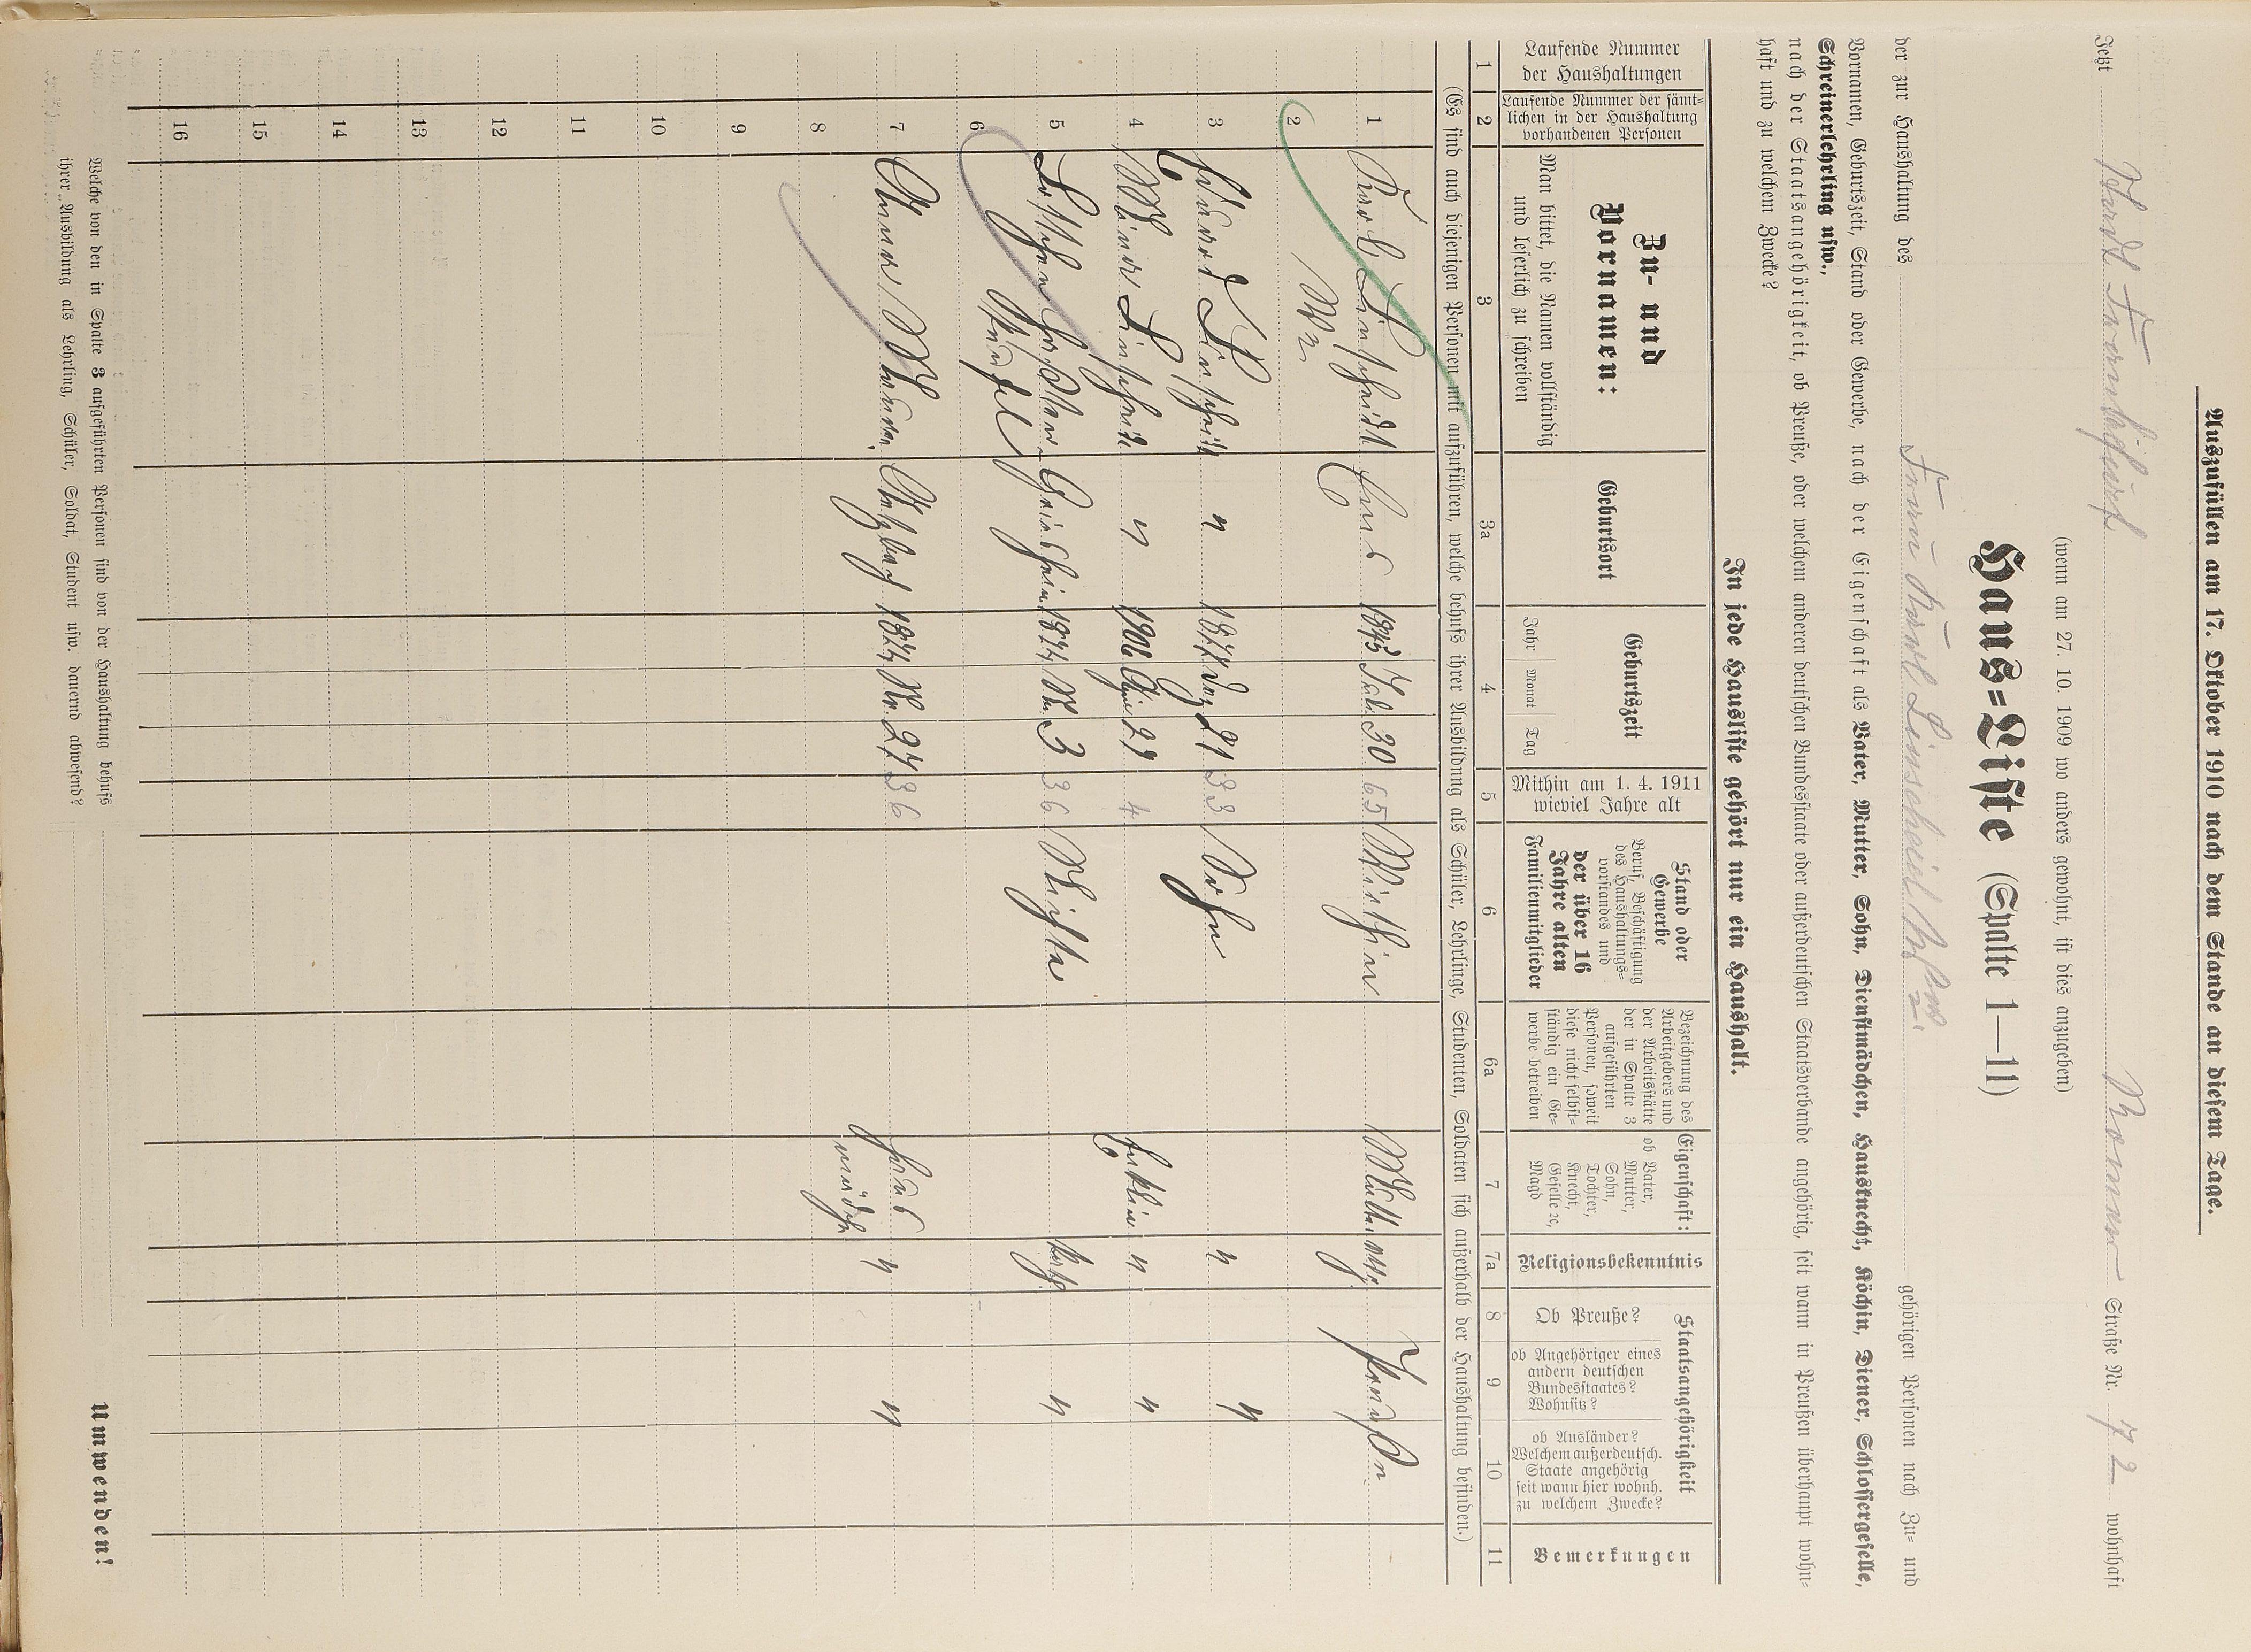 Auszufüllen am 17. Oktober 1910 nach dem Stande an diesem Tage.
Jetzt Bonner Straße Nr. 72 wohnhaft
(wenn am 27. 10. 1909 wo anders gewohnt, ist dies anzugeben)
Haus-Liste (Spalte 1—11)
der zur Haushaltung des Frau Karl Linscheidt Ww. gehörigen Personen nach Zu- und
Vornamen, Geburtszeit, Stand oder Gewerbe, nach der Eigenschaft als Vater, Mutter, Sohn, Dienstmädchen, Hausknecht, Köchin, Diener, Schlossergeselle,
Schreinerlehrling usw.,
nach der Staatsangehörigkeit, ob Preuße, oder welchem anderen deutschen Bundesstaate oder außerdeutschen Staatsverbande angehörig, seit wann in Preußen überhaupt wohn-
haft und zu welchem Zwecke?
In jede Hausliste gehört nur ein Haushalt.
Laufende Nummer
der Haushaltungen
Laufende Nummer der sämt-
lichen in der Haushaltung
vorhandenen Personen
Zu- und
Vornamen:
Man bittet, die Namen vollständig
und leserlich zu schreiben
Geburtsort
Geburtszeit
Jahr Monat Tag
Mithin am 1. 4. 1911
wieviel Jahre alt
Stand oder
Gewerbe
Beruf, Beschäftigung
des Haushaltungs-
vorstandes und
der über 16
Jahre alten
Familienmitglieder
Bezeichnung des
Arbeitgebers und
der Arbeitsstätte
der in Spalte 3
aufgeführten
Personen, soweit
diese nicht selbst-
ständig ein Ge-
werbe betreiben
Eigenschaft:
ob Vater,
Mutter,
Sohn,
Tochter,
Knecht,
Geselle ꝛc,
Magd
Religionsbekenntnis
Staatsangehörigkeit
Ob Preuße?
ob Angehöriger eines
andern deutschen
Bundesstaates?
Wohnsitz?
ob Ausländer?
Welchem außerdeutsch.
Staate angehörig
seit wann hier wohnh.
zu welchem Zwecke?
Bemerkungen
1 2 3 3a 4 5 6 6a 7 7a 8 9 10 11
(Es sind auch diejenigen Personen mit aufzuführen, welche behufs ihrer Ausbildung als Schüler, Lehrlinge, Studenten, Soldaten sich außerhalb der Haushaltung befinden.)
1 Karl Linscheidt 1845 Juli 30 65 Wirthin Mutter evg. Preußen
2 Ww
3 Eduard Linscheidt " 1877 Dez 21 33 Sohn " "
4 Linscheidt " 1906 27 4 Enkelin " "
5 1874 3 36 kath. "
6
7 Anna 1874 27 36 Haus " "
8 mädchen
9
10
11
12
13
14
15
16
Welche von den in Spalte 3 aufgeführten Personen sind von der Haushaltung behufs
ihrer Ausbildung als Lehrling, Schüler, Soldat, Student usw. dauernd abwesend?
Umwenden!